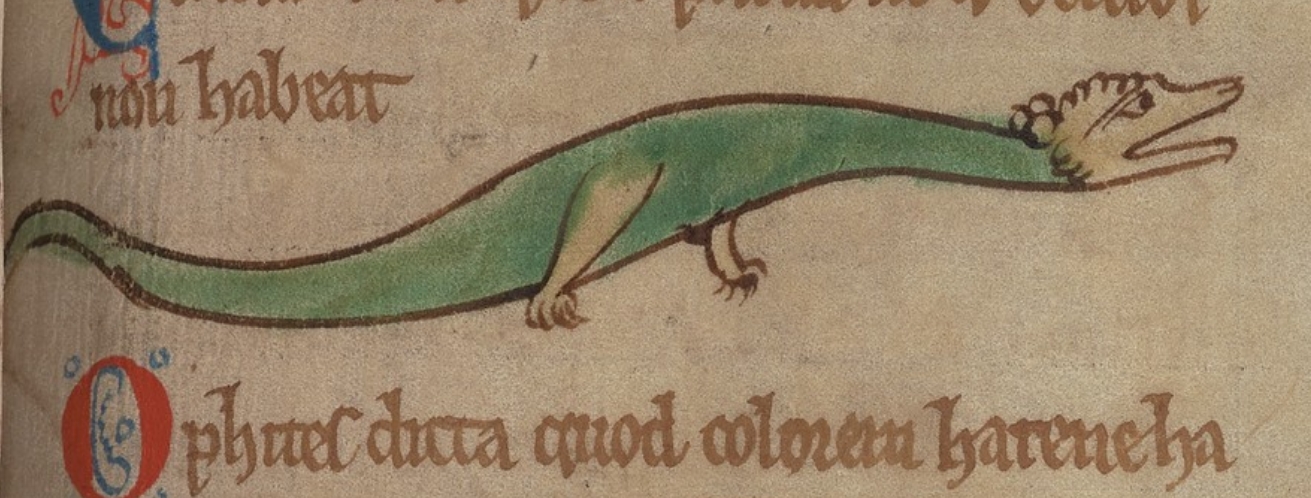 non habeat
Ophites dicta quod colorem harene ha